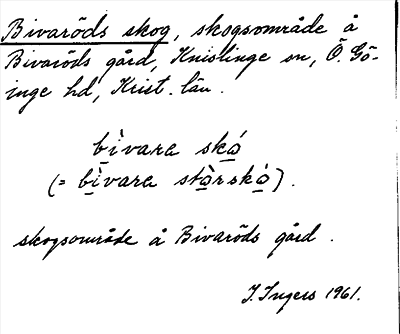 Bivaröds skog, skogsområde å
Bivaröds gård, Knislinge sn, Ö. Gö-
inge hd, Krist. län.
bìvara skó
(= bìvara stòrskó).
skogsområde å Bivaröds gård.
I. Ingers 1961.